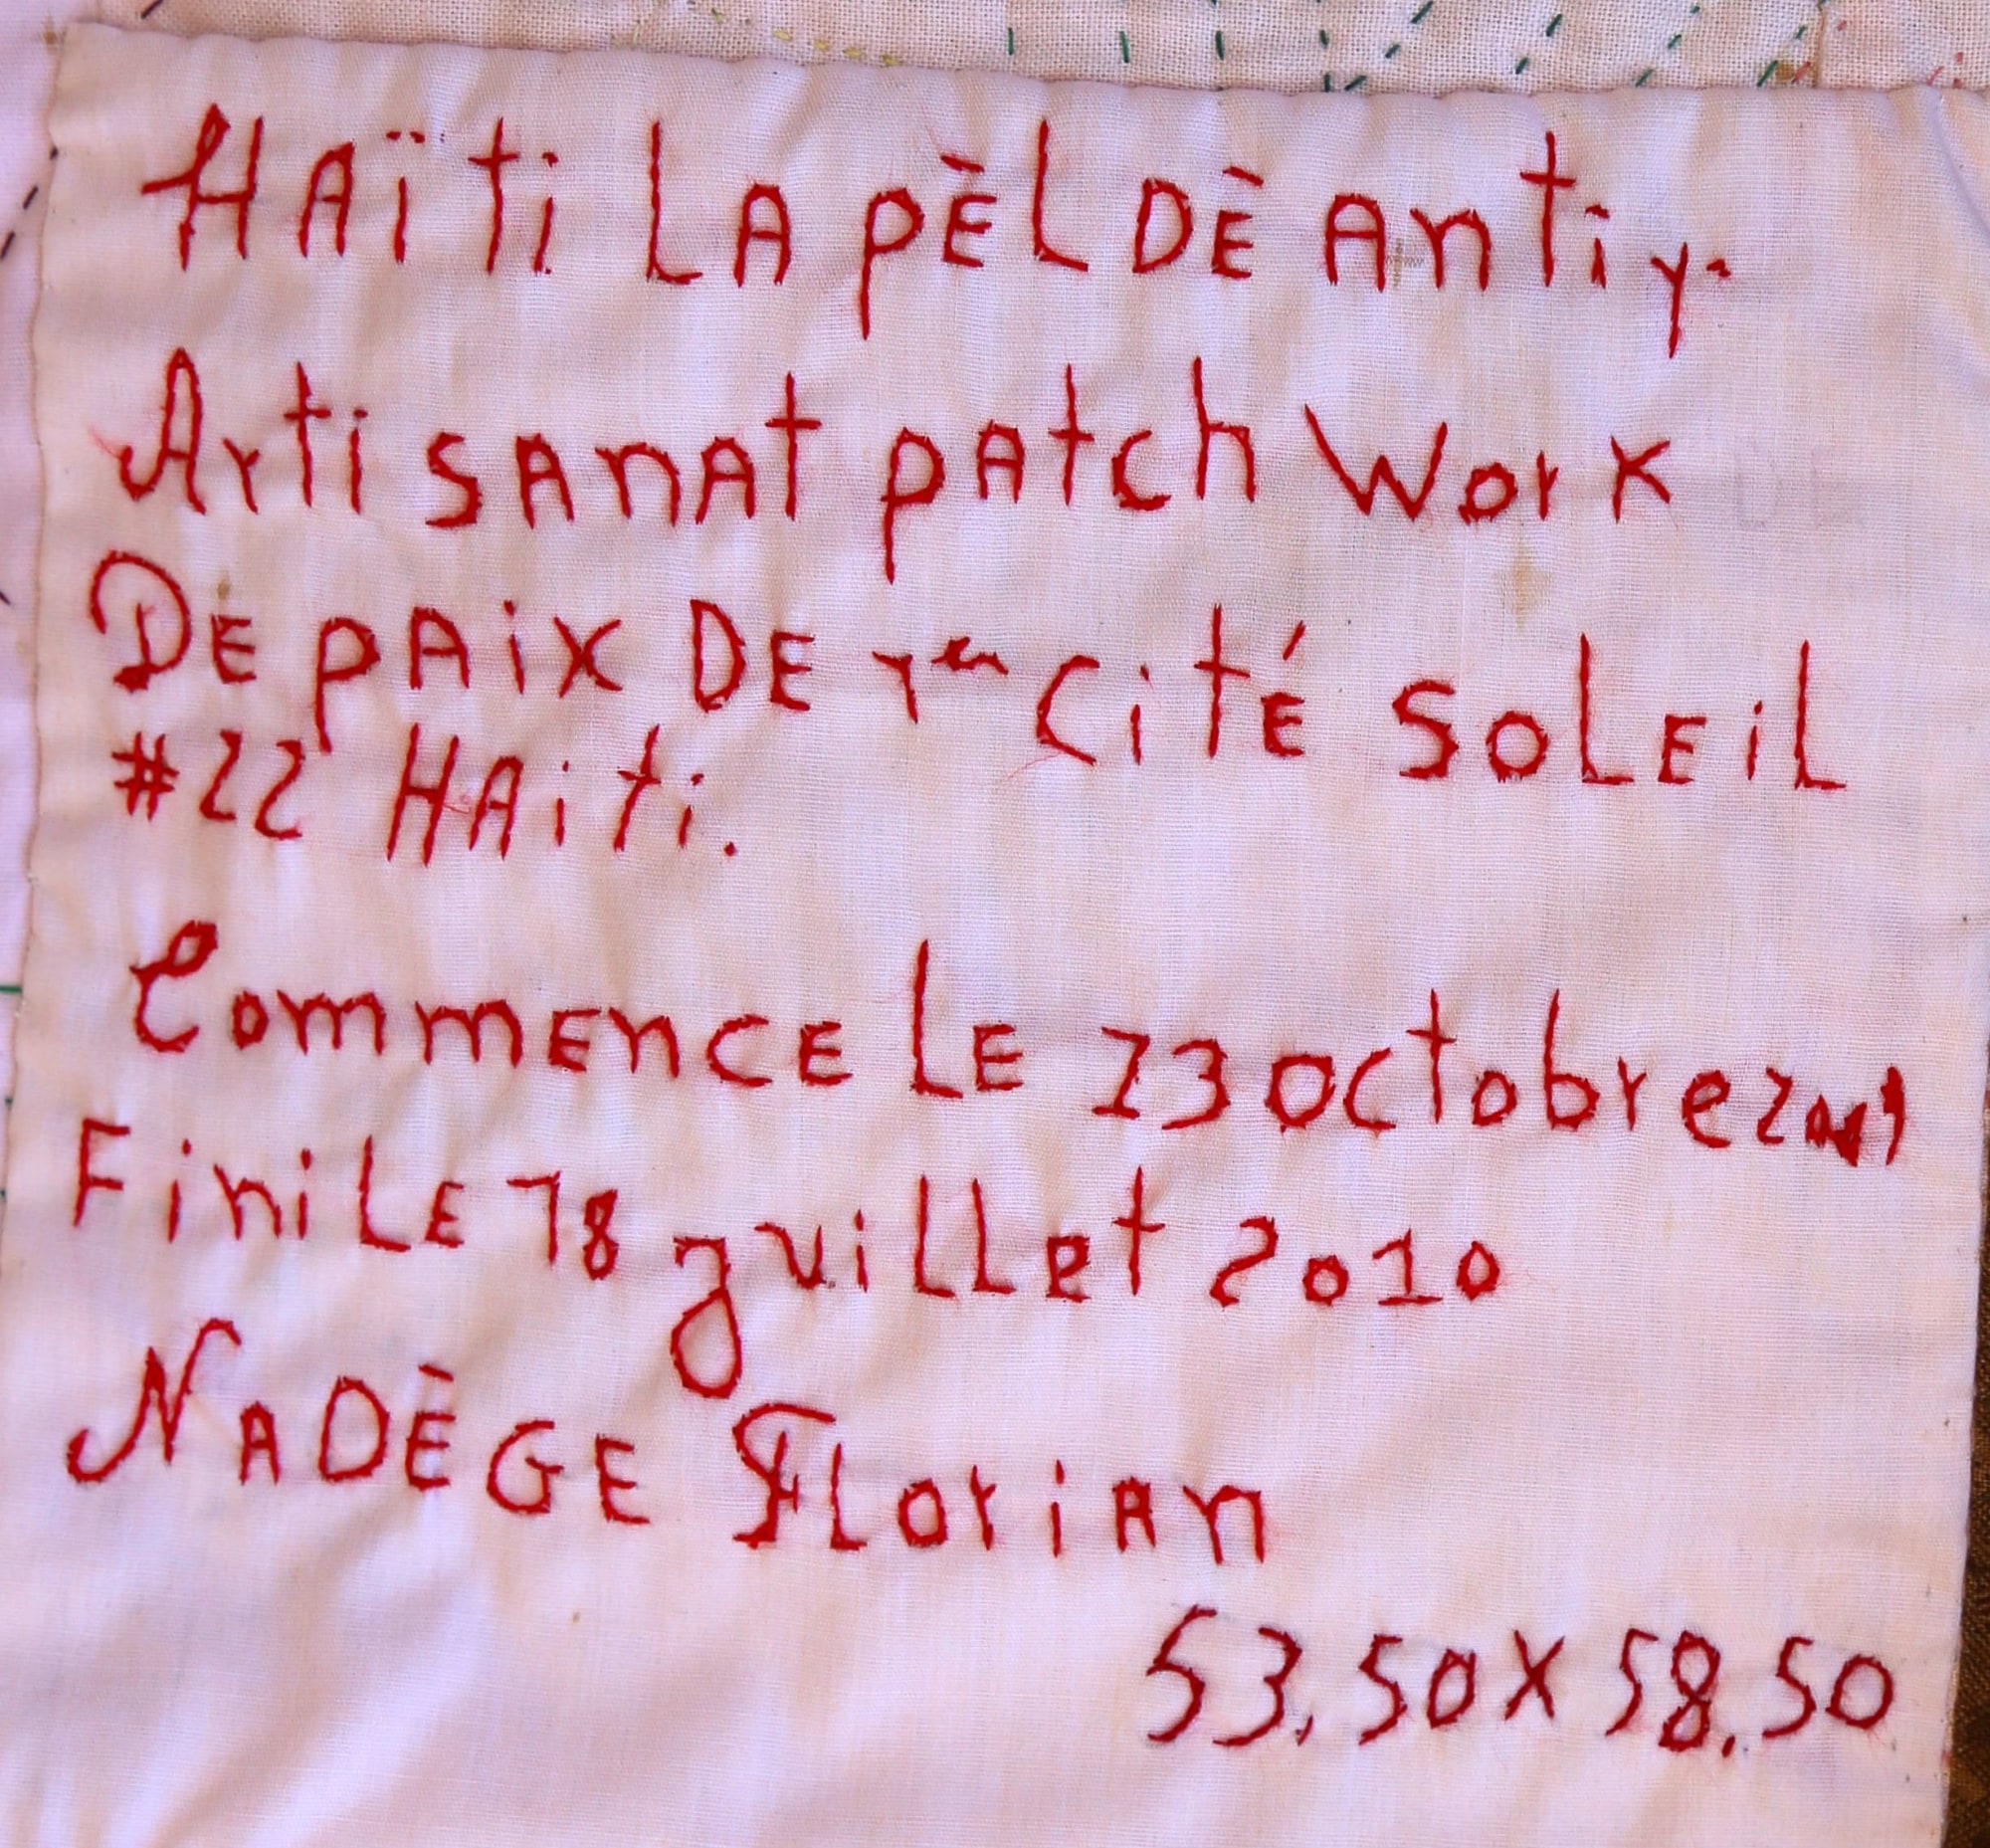 HAïti LA pÈL DÈ Antiy.
Artisanat patch work
DE PAix DE 1er Cité SOLEiL
#22 HAiti.
CommEncE LE 23 octobre 2009
Fini LE 18 juillet 2010
NADÈGE FLoriAn
53.50 X 58.50